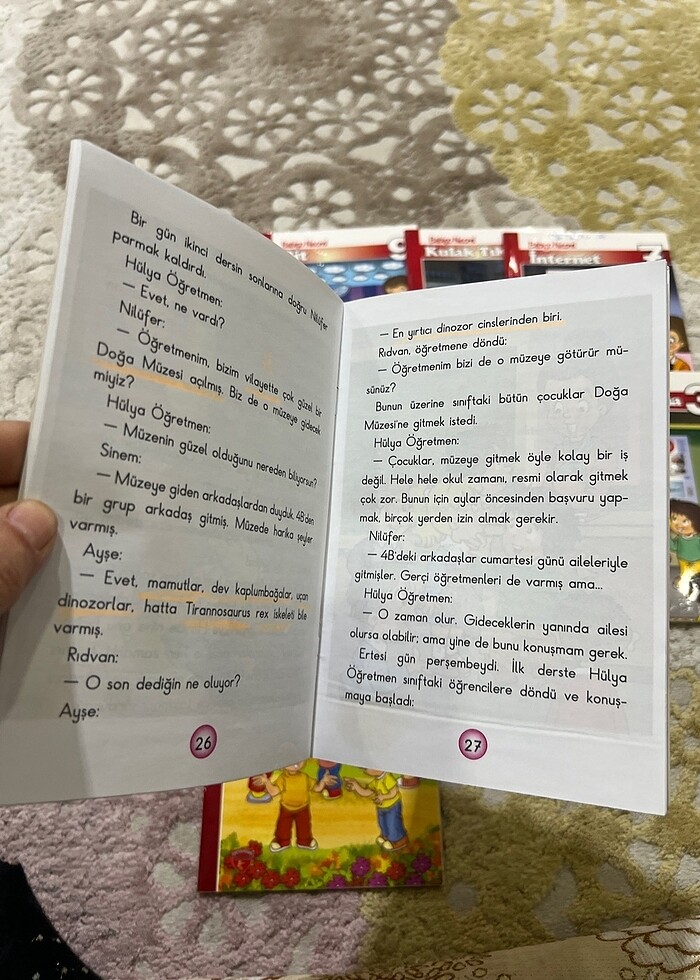 Bir gün ikinci dersin sonlarına doğru Nilüfer
parmak kaldırdı.
Hülya Öğretmen:
— Evet, ne vardı?
Nilüfer:
— Öğretmenim, bizim vilayette çok güzel bir
Doğa Müzesi açılmış. Biz de o müzeye gidecek
miyiz?
Hülya Öğretmen:
— Müzenin güzel olduğunu nereden biliyorsun?
Sinem:
— Müzeye giden arkadaşlardan duyduk. 4B'den
bir grup arkadaş gitmiş. Müzede harika şeyler
varmış.
Ayşe:
— Evet, mamutlar, dev kaplumbağalar, uçan
dinozorlar, hatta Tirannosaurus rex iskeleti bile
varmış.
Rıdvan:
— O son dediğin ne oluyor?
Ayşe:
26
— En yırtıcı dinozor cinslerinden biri.
Rıdvan, öğretmene döndü:
— Öğretmenim bizi de o müzeye götürür mü-
sünüz?
Bunun üzerine sınıftaki bütün çocuklar Doğa
Müzesi'ne gitmek istedi.
Hülya Öğretmen:
— Çocuklar, müzeye gitmek öyle kolay bir iş
değil. Hele hele okul zamanı, resmi olarak gitmek
çok zor. Bunun için aylar öncesinden başvuru yap-
mak, birçok yerden izin almak gerekir.
Nilüfer:
— 4B'deki arkadaşlar cumartesi günü aileleriyle
gitmişler. Gerçi öğretmenleri de varmış ama...
Hülya Öğretmen:
— O zaman olur. Gideceklerin yanında ailesi
olursa olabilir; ama yine de bunu konuşmam gerek.
Ertesi gün perşembeydi. İlk derste Hülya
Öğretmen sınıftaki öğrencilere döndü ve konuş-
maya başladı:
27
Kulak Tık
İnternet